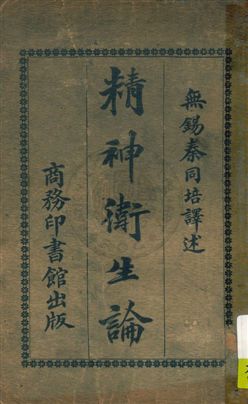 無錫秦同培譯述
精神衛生論
商務印書館出版